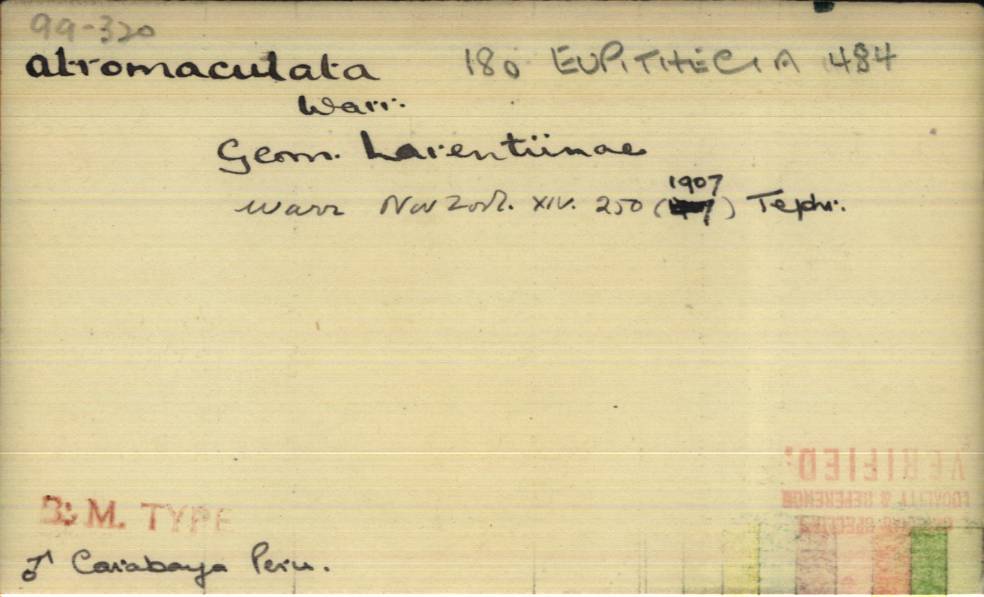 99-320
atromaculata 180 EUPITHECIA 484
Warr.
Geom. Larentiinae
1907
Warr Nov Zool. XIV. 250 ( ) Teph:
VERIFIED:
LOCALITY & REFERENCE
B. M. TYPE
♂ Carabaya Peru.